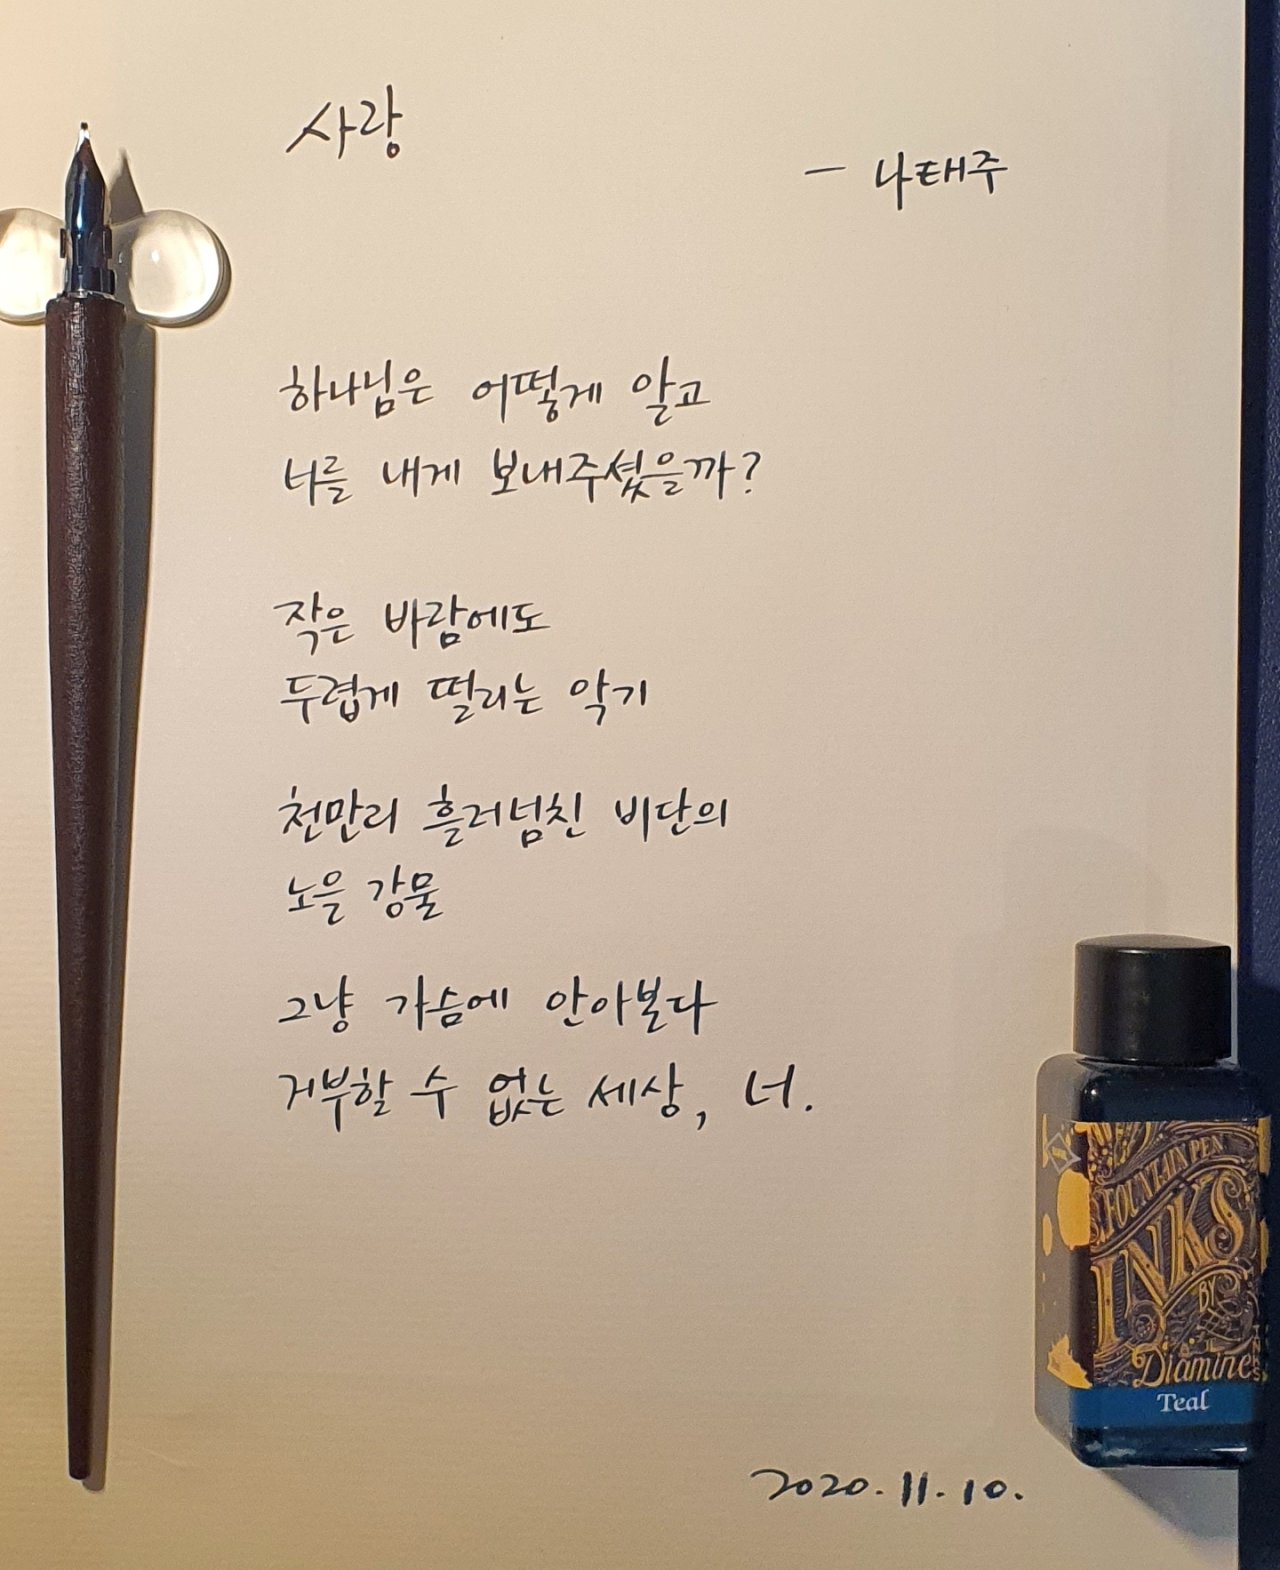 사랑
— 나태주
하나님은 어떻게 알고
너를 내게 보내주셨을까?
작은 바람에도
두렵게 떨리는 악기
천만리 흘러넘친 비단의
노을 강물
그냥 가슴에 안아본다
거부할 수 없는 세상, 너.
FOUNTAIN PEN
INKS
BY
Diamine
Teal
2020.11.10.